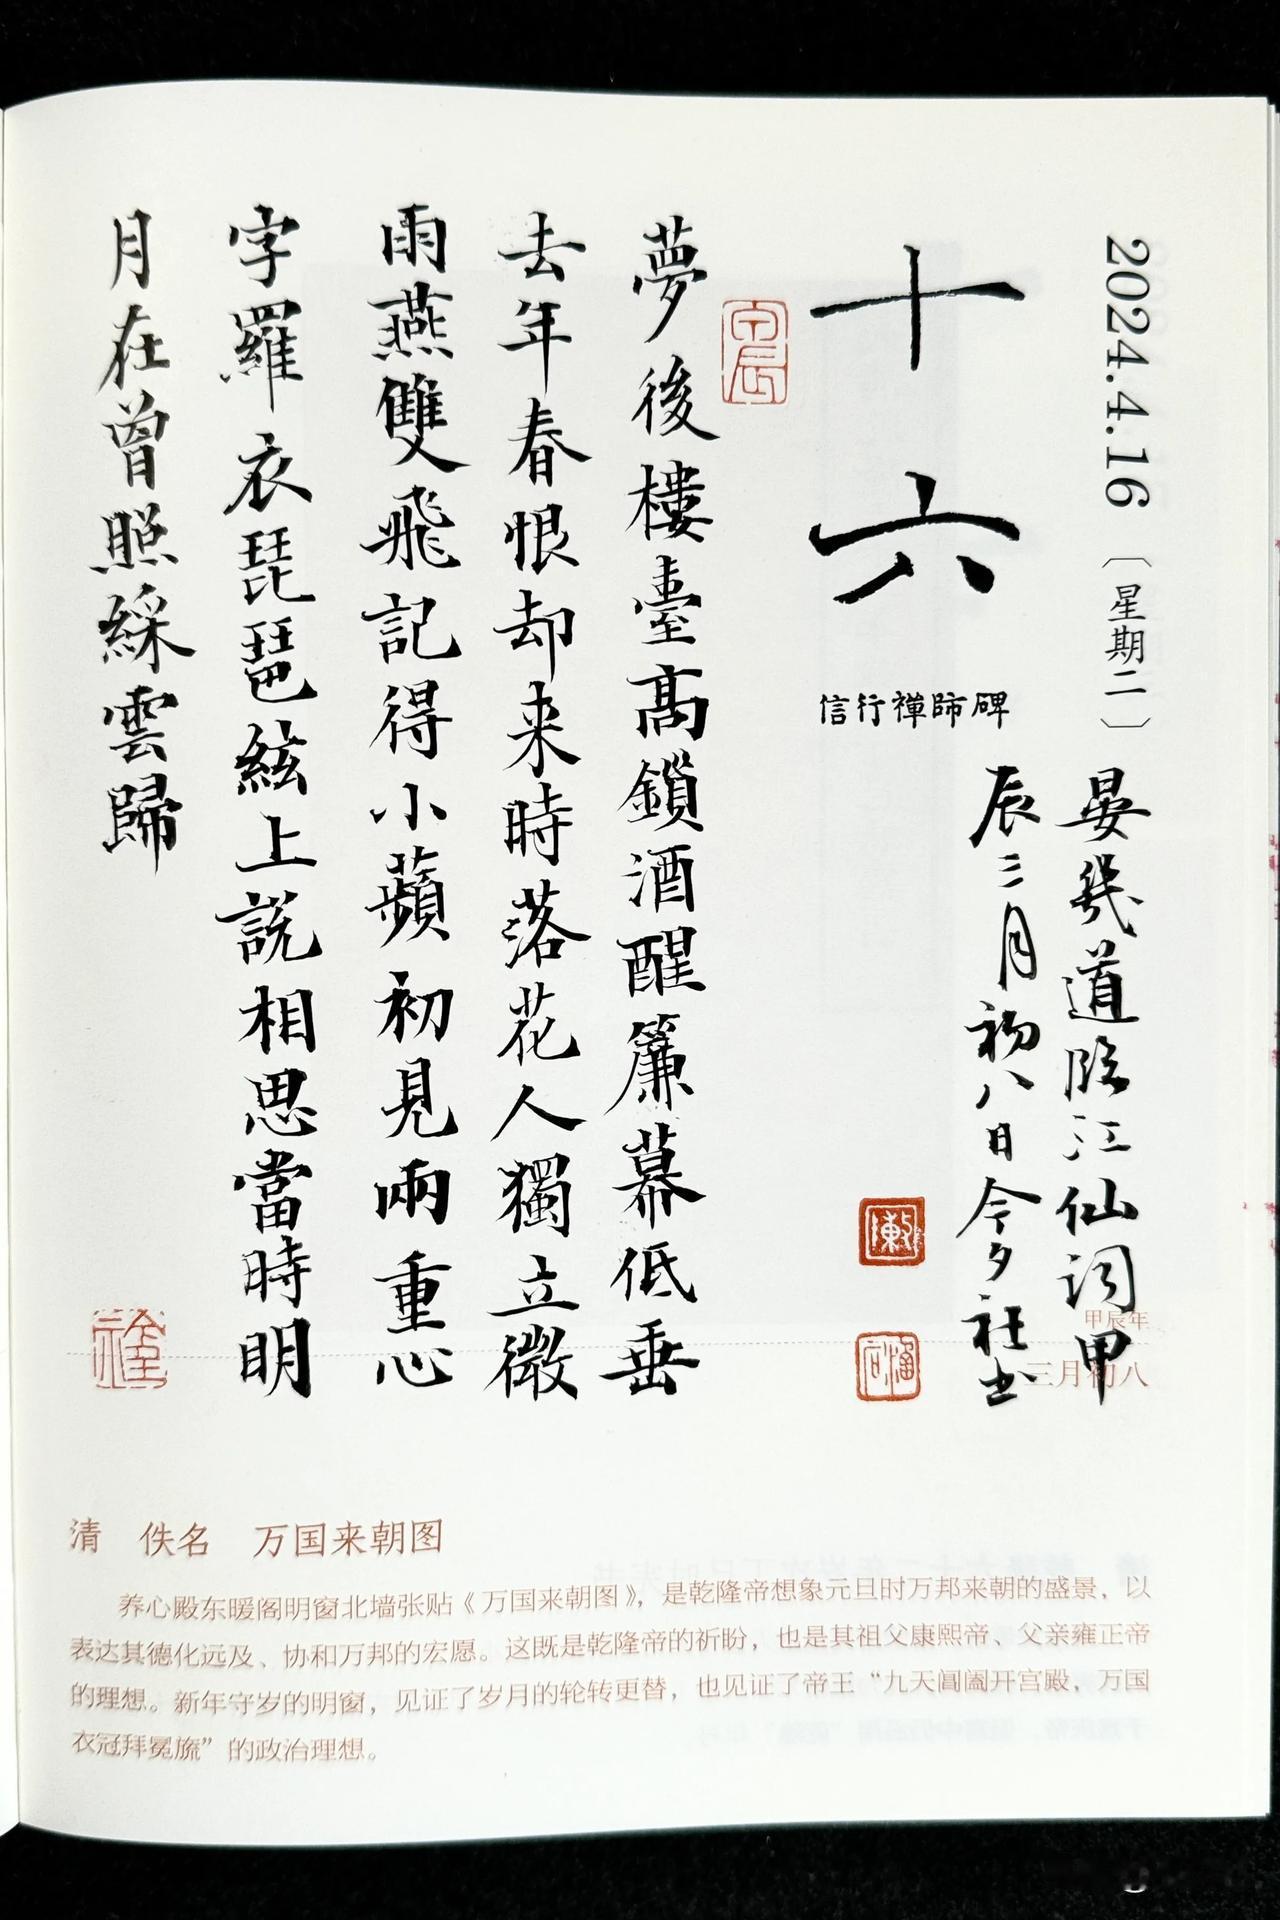 2024.4.16〔星期二〕
十六
信行禅師碑
夢後樓臺高鎖酒醒簾幕低垂
去年春恨却来時落花人獨立微
雨燕雙飛記得小蘋初見兩重心
字羅衣琵琶絃上説相思當時明
月在曾照綵雲歸
晏幾道臨江仙词甲
辰三月初八日今夕社书
甲辰年
三月初八
清 佚名 万国来朝图
养心殿东暖阁明窗北墙张贴《万国来朝图》，是乾隆帝想象元旦时万邦来朝的盛景，以
表达其德化远及、协和万邦的宏愿。这既是乾隆帝的祈盼，也是其祖父康熙帝、父亲雍正帝
的理想。新年守岁的明窗，见证了岁月的轮转更替，也见证了帝王“九天阊阖开宫殿，万国
衣冠拜冕旒”的政治理想。